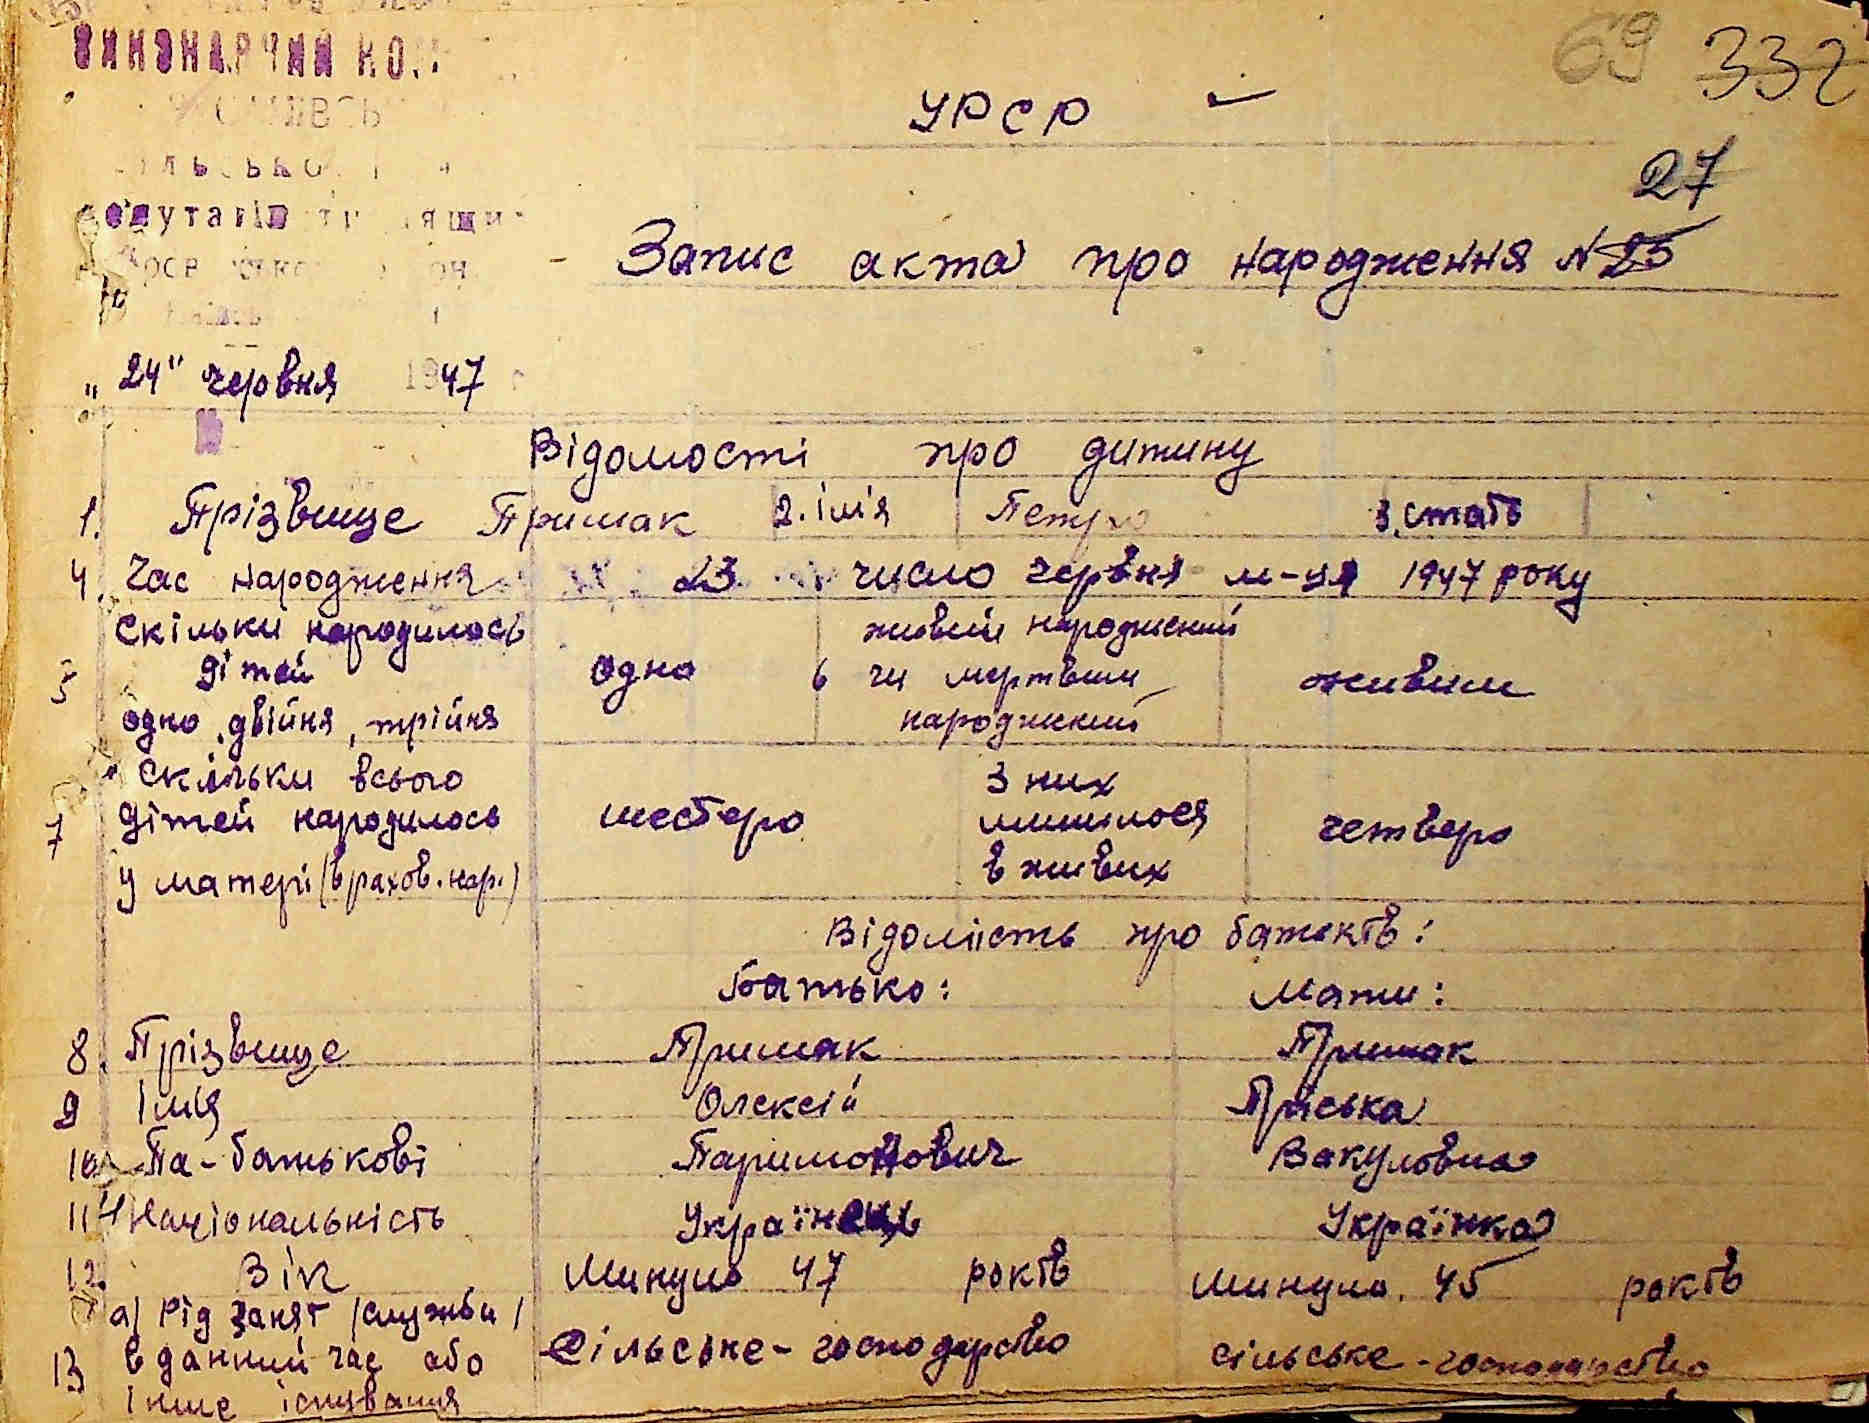 69 332
УРСР
27
Запис акта про народження N 25
„24" червня 1947
Відомості про дитину
1. Прізвище Примак 2. імія Петро 3. стать
4. Час народження 23 число червня м-ця 1947 року
Скільки народилось живий народжений
5 дітей одно 6 чи мертвим живим
одно, двійня, трійня народжений
Скільки всього З них
7 дітей народилось шестеро лишилося четверо
у матері (врахов. нар.) в живих
Відомість про батьків:
Батько: Мати:
8. Прізвище Примак Примак
9 Імія Олексій Пріська
10 Па-батькові Паримонович Вакуловна
11 Національність Українець Українка
12. Вік Минуло 47 років минуло. 45 років
а/ Рід занят /служби/
13 в данний час або сільське-господарство сільське-господарство
інше існування